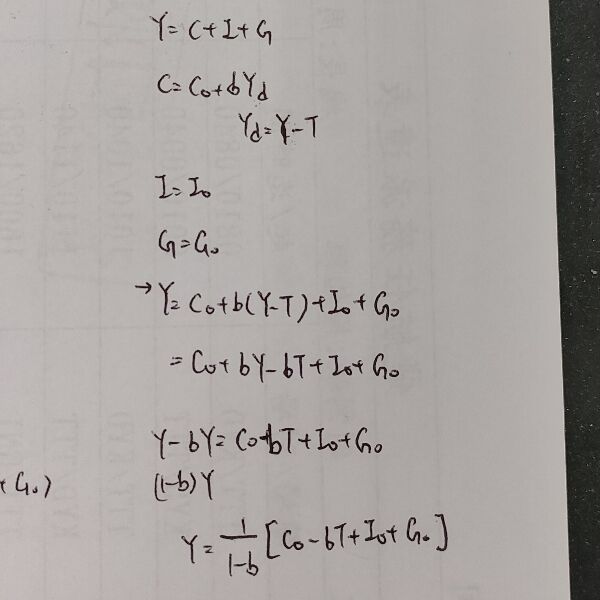 Y = C + I + G
C = C₀ + bYd
Yd = Y - T
I = I₀
G = G₀
→ Y = C₀ + b(Y-T) + I₀ + G₀
= C₀ + bY - bT + I₀ + G₀
Y - bY = C₀ - bT + I₀ + G₀
+ G₀)
(1-b)Y
Y = 1/(1-b) [C₀ - bT + I₀ + G₀]